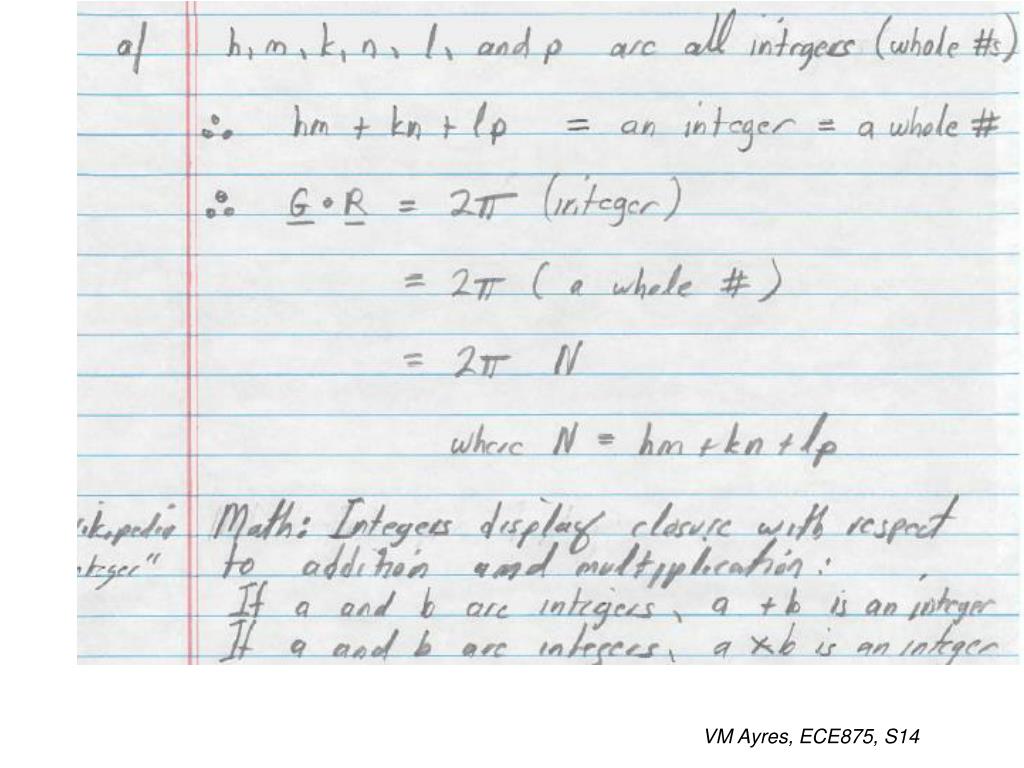 a/ h, m, k, n, l, and p are all integers (whole #s)
∴ hm + kn + lp = an integer = a whole #
∴ G • R = 2π (integer)
= 2π ( a whole # )
= 2π N
where N = hm + kn + lp
ikipedia Math: Integers display closure with respect
nteger" to addition and multiplication:
If a and b are integers, a + b is an integer
If a and b are integers, a × b is an integer
VM Ayres, ECE875, S14